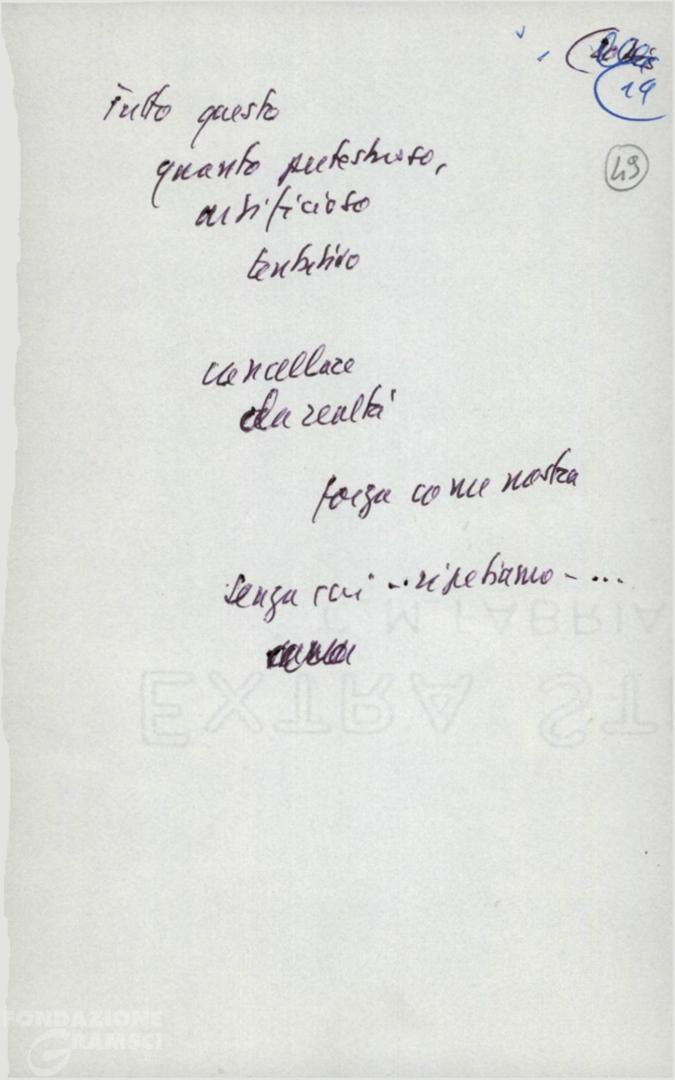 19
49
Tutto questo
quanto pretestuoso,
artificioso
tentativo
cancellare
da realtà
forza come nostra
senza cui - ripetiamo - ...
EXTRA ST
C.M.FABRIA
FONDAZIONE
GRAMSCI